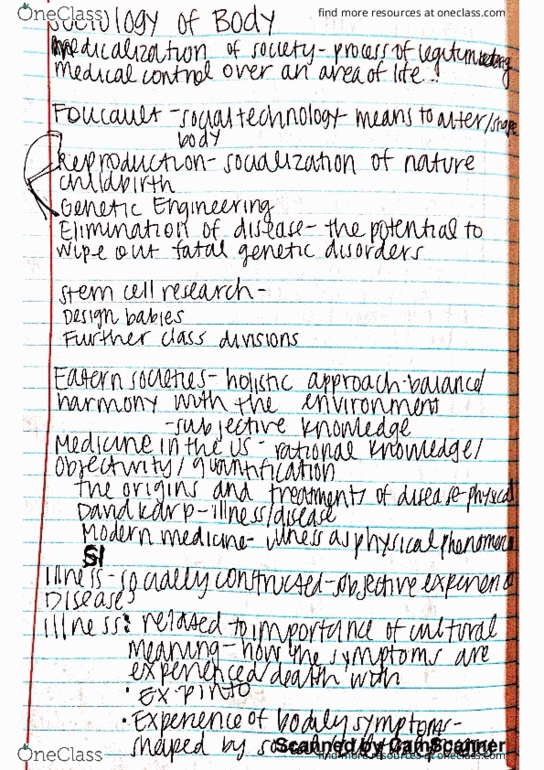 OneClass
find more resources at oneclass.com
Sociology of Body
Medicalization of society - process of legitimating
medical control over an area of life.
Foucault - social technology - means to alter/shape
body
Reproduction - socialization of nature
childbirth
Genetic Engineering
Elimination of disease - the potential to
wipe out fatal genetic disorders
stem cell research -
Design babies
Further class divisions
Eatern societies - holistic approach - balance/
harmony with the environment
- subjective knowledge
Medicine in the US - rational knowledge/
Objectivity / quantification
The origins and treatments of disease - physical
Davd Karp - illness/disease
Modern medicine - illness as physical phenomena
SI
Illness - socially constructed - objective experienc
Disease
Illness: related to importance of cultural
meaning - how the symptoms are
experienced/dealth with
• Ex. pinto
• Experience of bodily symptoms -
shaped by
Scanned by CamScanner
OneClass
find more resources at oneclass.com